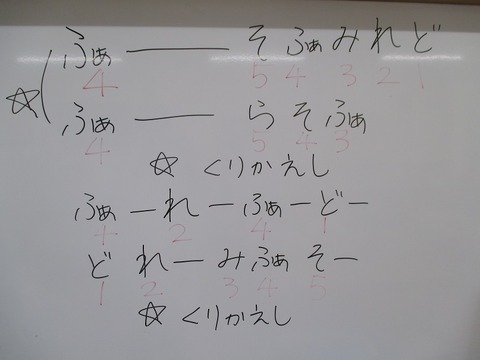 ふぁ ――― そ ふぁ み れ ど
4 5 4 3 2 1
☆
ふぁ ――― ら そ ふぁ
4 5 4 3
☆ くりかえし
ふぁ ー れ ー ふぁ ー ど ー
4 2 4 1
ど れ ー み ふぁ そ ー
1 2 3 4 5
☆ くりかえし